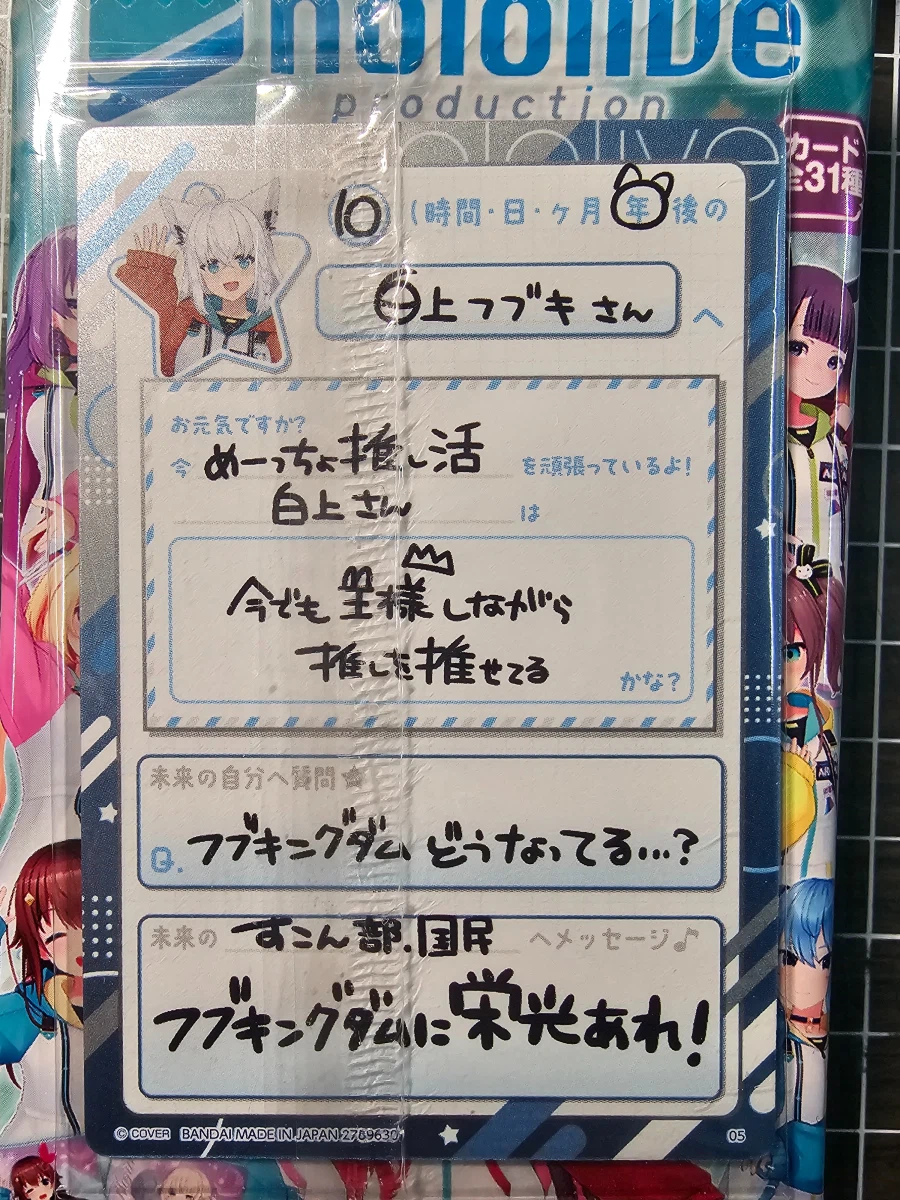 hololive
production
hololive
カード
全31種
10 (時間・日・ヶ月 年 後の
白上フブキさん へ
お元気ですか?
今 めーっちょ推し活 を頑張っているよ!
白上さん は
今でも王様しながら
推しを推せてる かな?
未来の自分へ質問☆
Q. フブキングダムどうなってる…?
未来の すこん部.国民 へメッセージ♪
フブキングダムに栄光あれ!
© COVER BANDAI MADE IN JAPAN 2789630 05